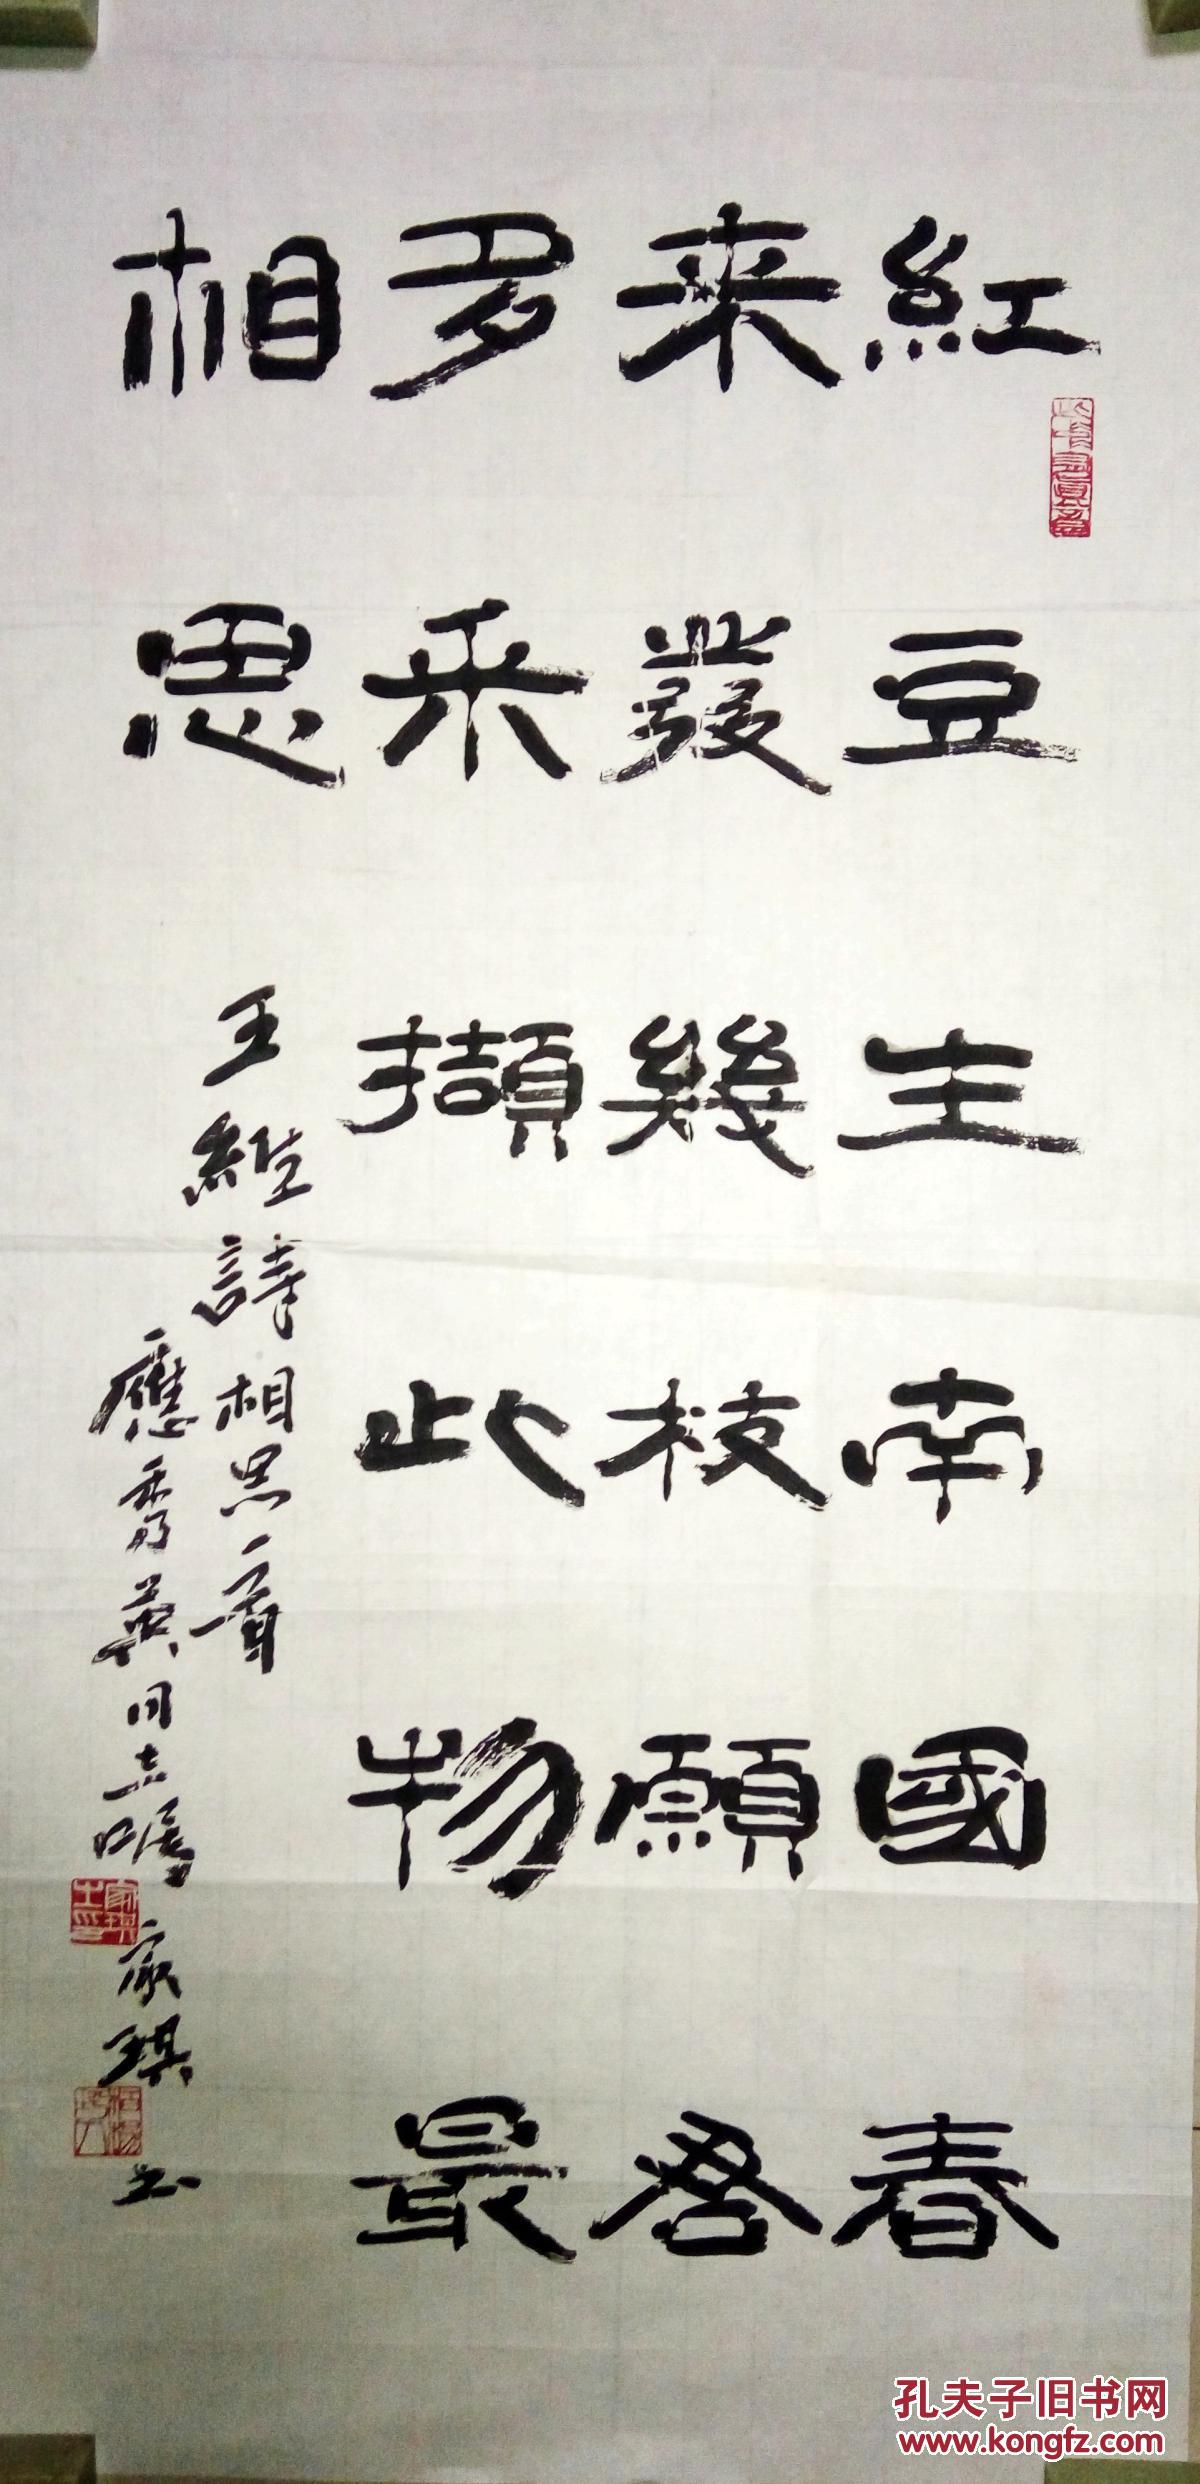 紅豆生南國春
来發幾枝願君
多采擷此物最
相思
王維詩相思一首
應秀英同志囑
家琪书
孔夫子旧书网
www.kongfz.com